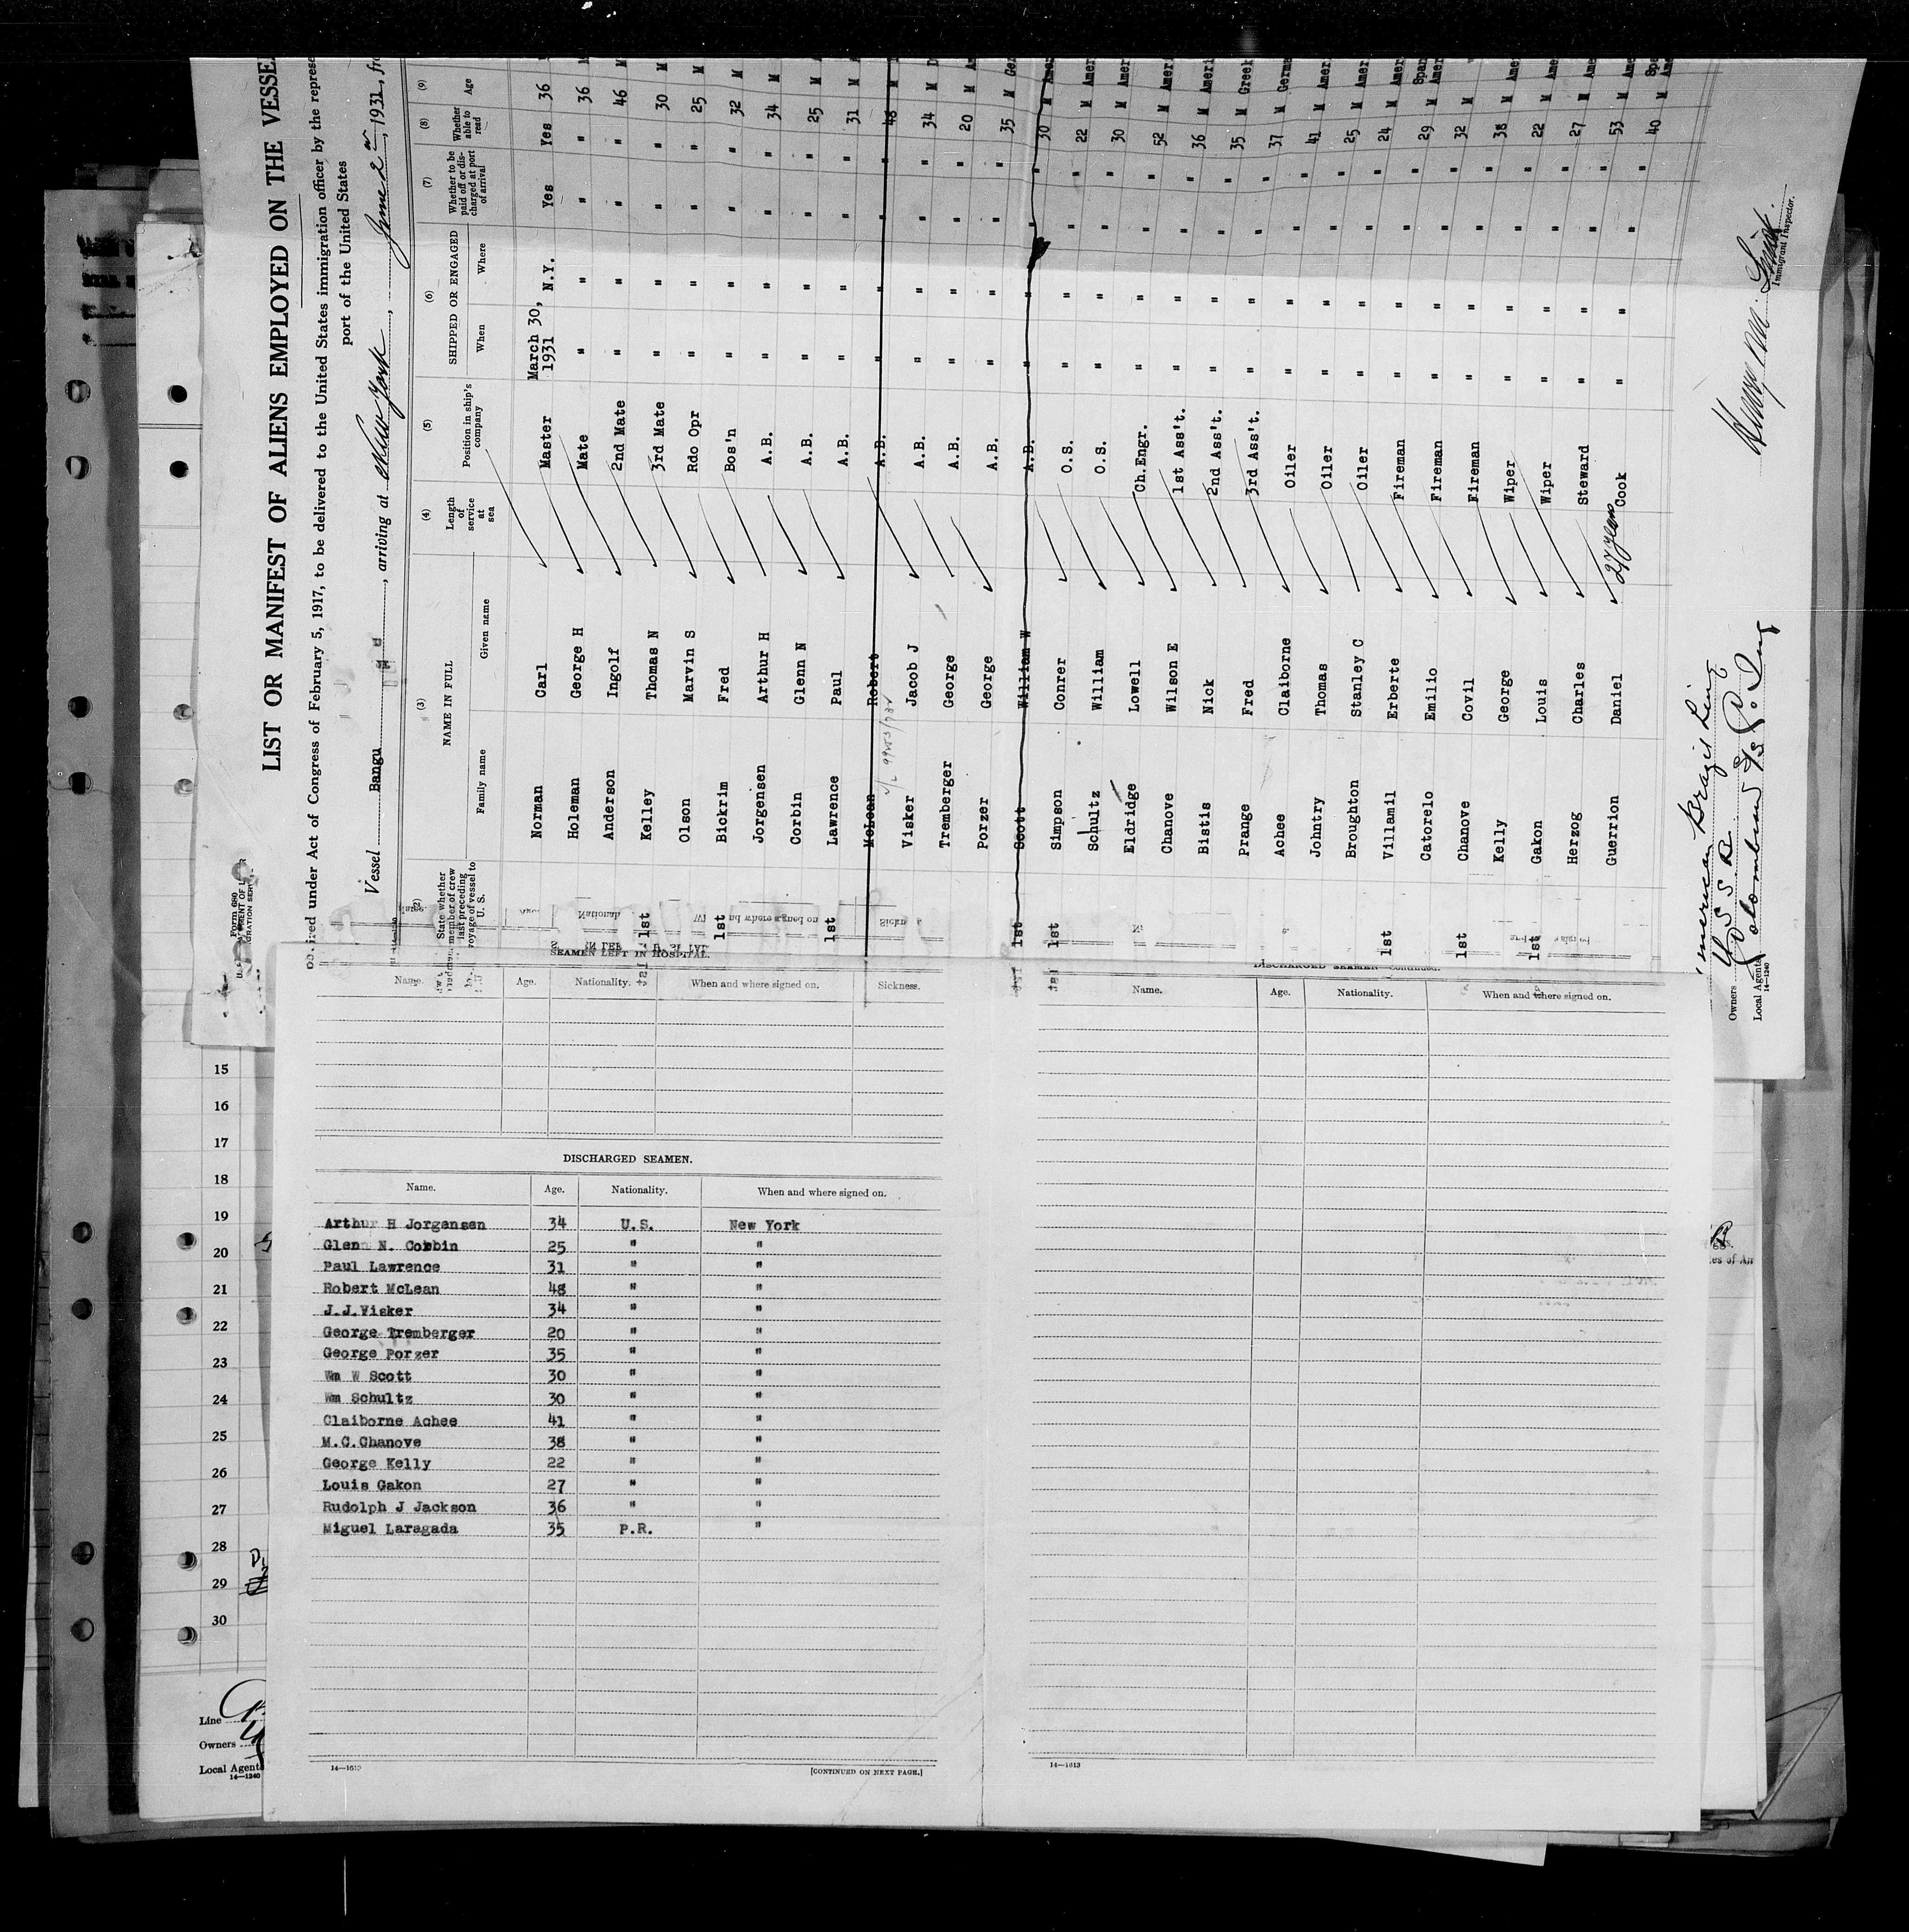 LIST OR MANIFEST OF ALIENS EMPLOYED ON THE VESSE
under Act of Congress of February 5, 1917, to be delivered to the United States immigration officer by the represe
port of the United States
Vessel Bangu , arriving at New York , June 2nd , 1931, fro
Form 680
(2) (3) (4) (5) (6) (7) (8) (9)
State whether member of crew last preceding voyage of vessel to U. S. NAME IN FULL Length of service at sea Position in ship's company SHIPPED OR ENGAGED Whether to be paid off or discharged at port of arrival Whether able to read Age
Family name Given name When Where
Norman Carl Master March 30, 1931 N.Y. Yes Yes 36
Holeman George H Mate " " " " 36 M
Anderson Ingolf 2nd Mate " " " " 46 M
1st Kelley Thomas N 3rd Mate " " " " 30 M
Olson Marvin S Rdo Opr " " " " 25 M
1st Bickrim Fred Bos'n " " " " 32 M
Jorgensen Arthur H A.B. " " " " 34 M
Corbin Glenn N A.B. " " " " 25 M
1st Lawrence Paul A.B. " " " " 31 M
McLean Robert A.B. " " " " 48 M
Visker Jacob J A.B. " " " " 34 M D
Tremberger George A.B. " " " " 20 M Am
Porzer George A.B. " " " " 35 M Ger
1st Scott William W A.B. " " " " 30 M Amer
1st Simpson Conrer O.S. " " " " 22 M Amer
Schultz William O.S. " " " " 30 M Amer
Eldridge Lowell Ch.Engr. " " " " 52 M Ameri
Chanove Wilson E 1st Ass't. " " " " 36 M Ameri
Bistis Nick 2nd Ass't. " " " " 35 M Greek
Prange Fred 3rd Ass't. " " " " 37 M Germa
Achee Claiborne Oiler " " " " 41 M Amer
Johntry Thomas Oiler " " " " 25 M Amer
Broughton Stanley C Oiler " " " " 24 M Amer
1st Villamil Erberte Fireman " " " " 29 M Span Amer
Catorelo Emilio Fireman " " " " 32 M
1st Chanove Covil Fireman " " " " 38 M Amer
Kelly George Wiper " " " " 22 M Ame
1st Gakon Louis Wiper " " " " 27 M Ame
Herzog Charles Steward " " " " 53 M Ame
Guerrion Daniel 27 years Cook " " " " 40 M Spa Ame
merican Brazil Line
Owners U S S B
Local Agents
14—1240
Immigrant Inspector.
SEAMEN LEFT IN HOSPITAL.
Name. Age. Nationality. When and where signed on. Sickness.
DISCHARGED SEAMEN.
Name. Age. Nationality. When and where signed on.
Arthur H Jorgensen 34 U.S. New York
Glenn N. Corbin 25 " "
Paul Lawrence 31 " "
Robert McLean 48 " "
J.J.Visker 34 " "
George Tremberger 20 " "
George Porzer 35 " "
Wm W Scott 30 " "
Wm Schultz 30 " "
Claiborne Achee 41 " "
M.C.Chanove 38 " "
George Kelly 22 " "
Louis Gakon 27 " "
Rudolph J Jackson 36 " "
Miguel Laragada 35 P.R. "
14—1613
[CONTINUED ON NEXT PAGE.]
DISCHARGED SEAMEN—Continued.
Name. Age. Nationality. When and where signed on.
14—1613
15
16
17
18
19
20
21
22
23
24
25
26
27
28
29
30
Line
Owners
Local Agents
14—1240